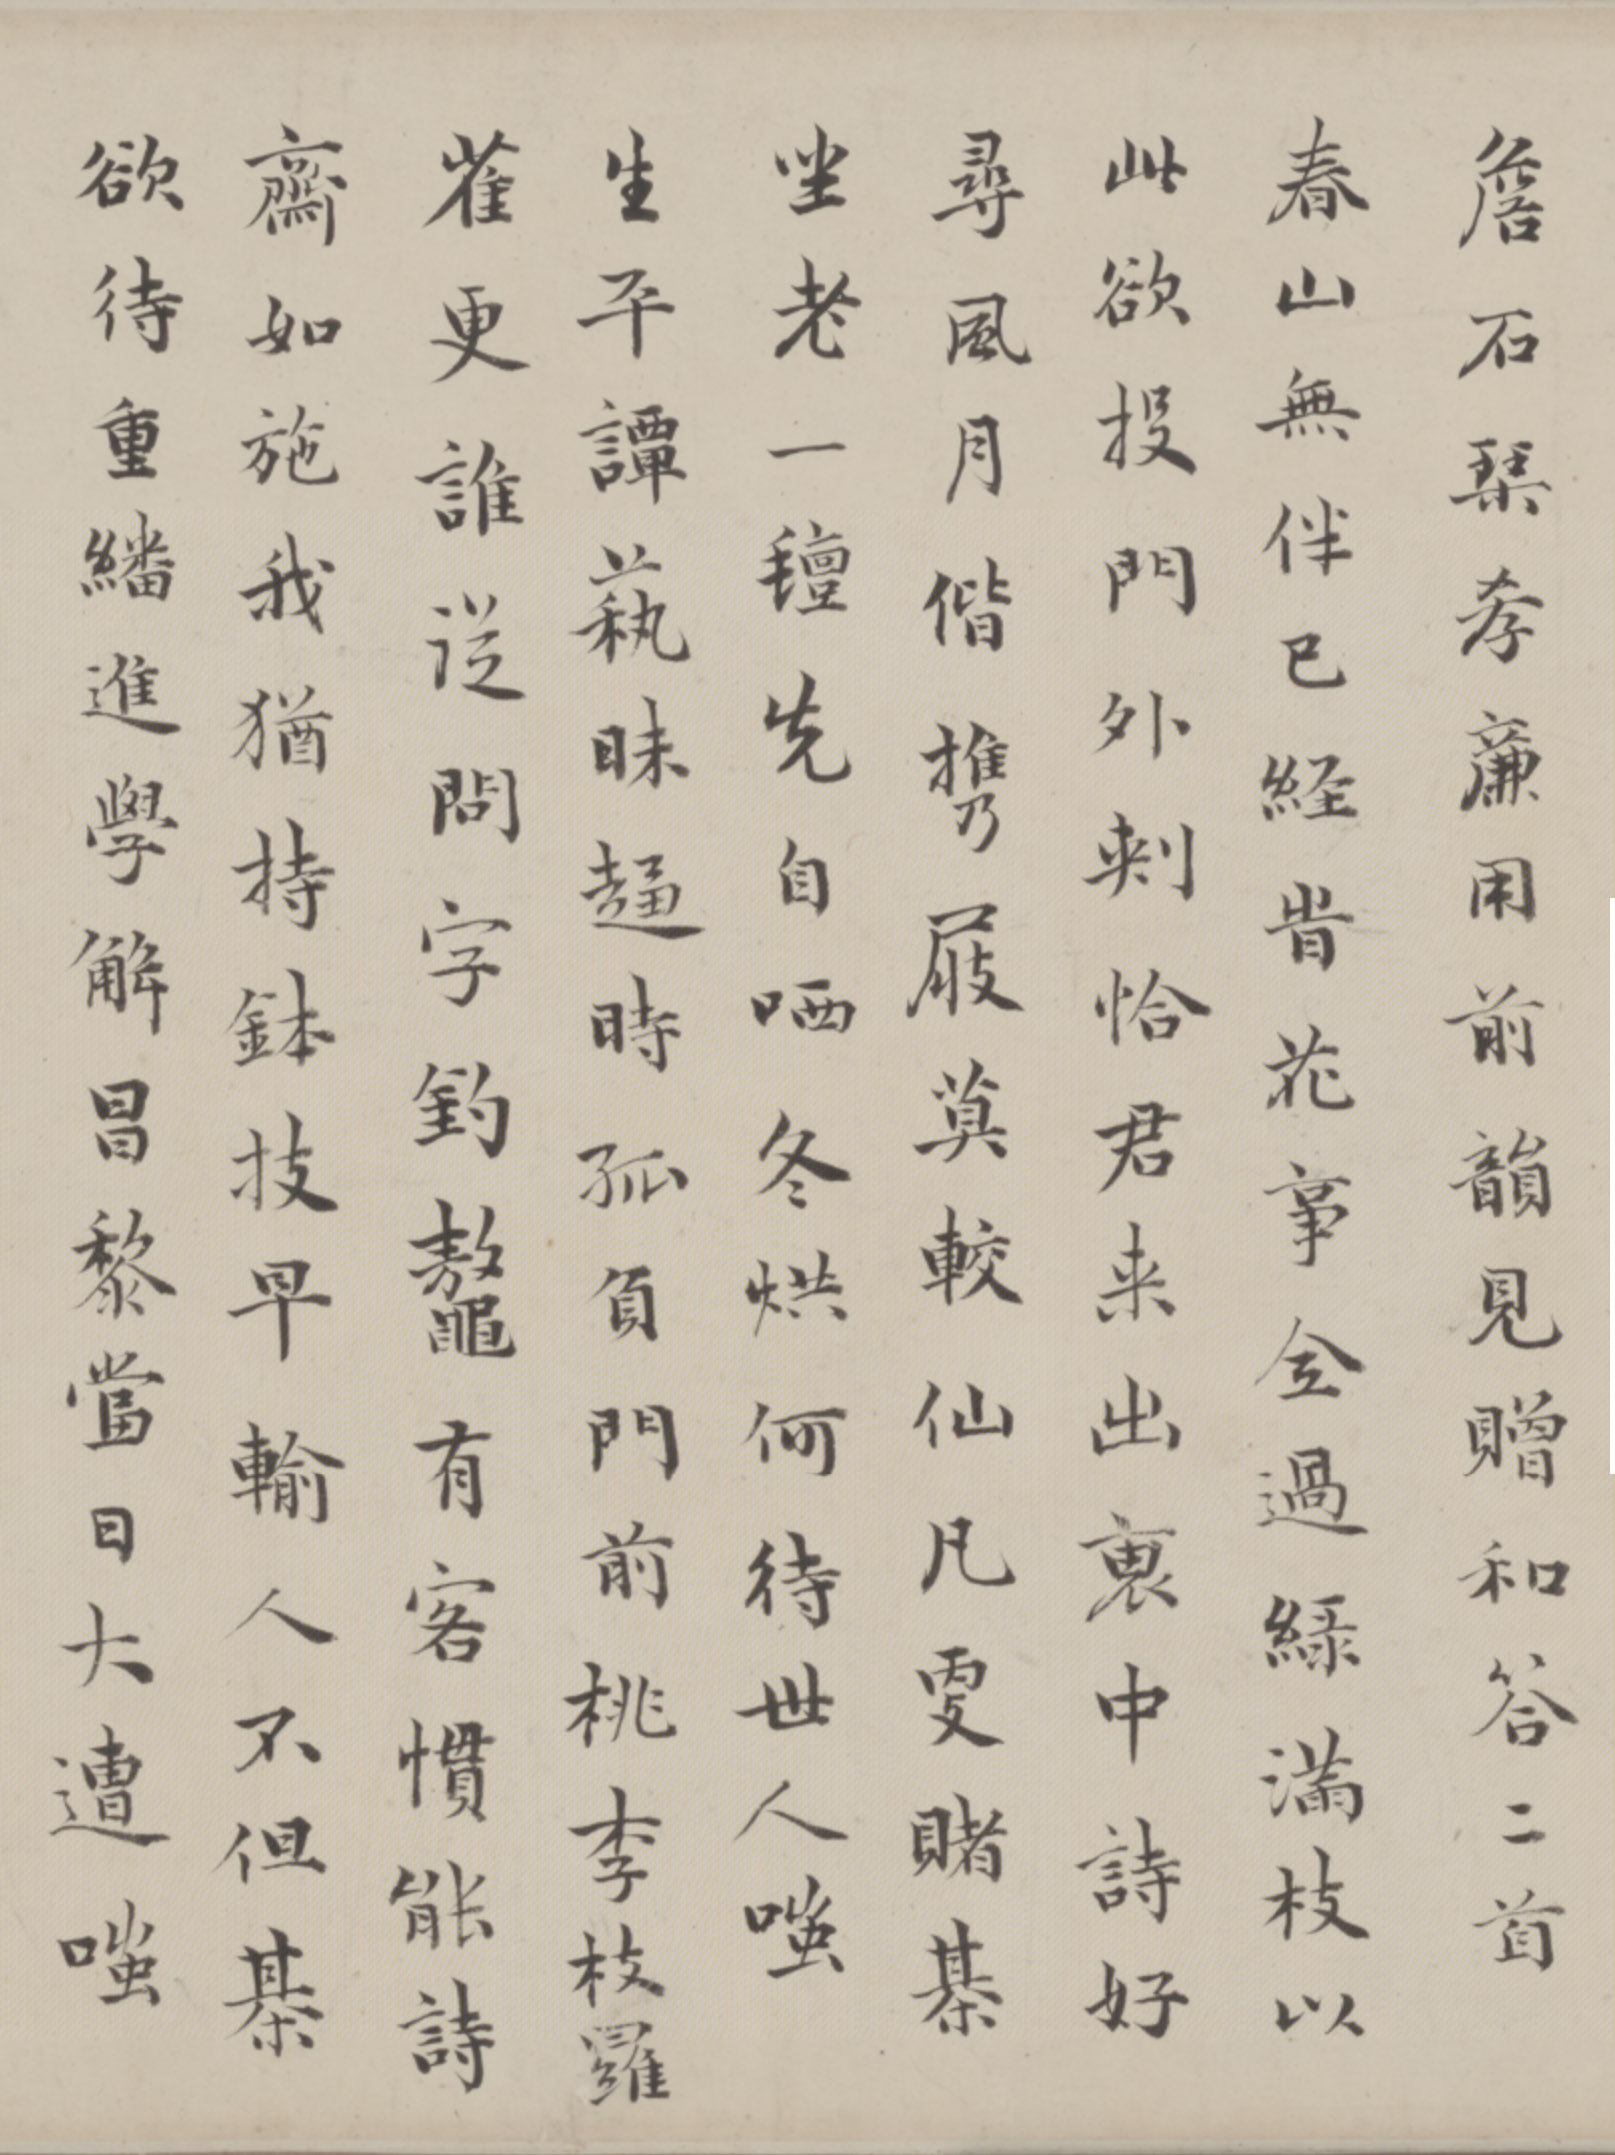 詹石琴孝廉用前韻見贈和答二首
春山無伴已経旹花事全過綠滿枝以
此欲投門外刺恰君来出裏中詩好
尋風月偕携屐莫較仙凡㪅賭棊
坐老一氊先自哂冬烘何待世人嗤
生平譚藝昧趨時孤負門前桃李枝羅
雀更誰從問字釣鼇有客慣能詩
齋如施我猶持鉢技早輸人不但棊
欲待重繙進學解昌黎當日大遭嗤